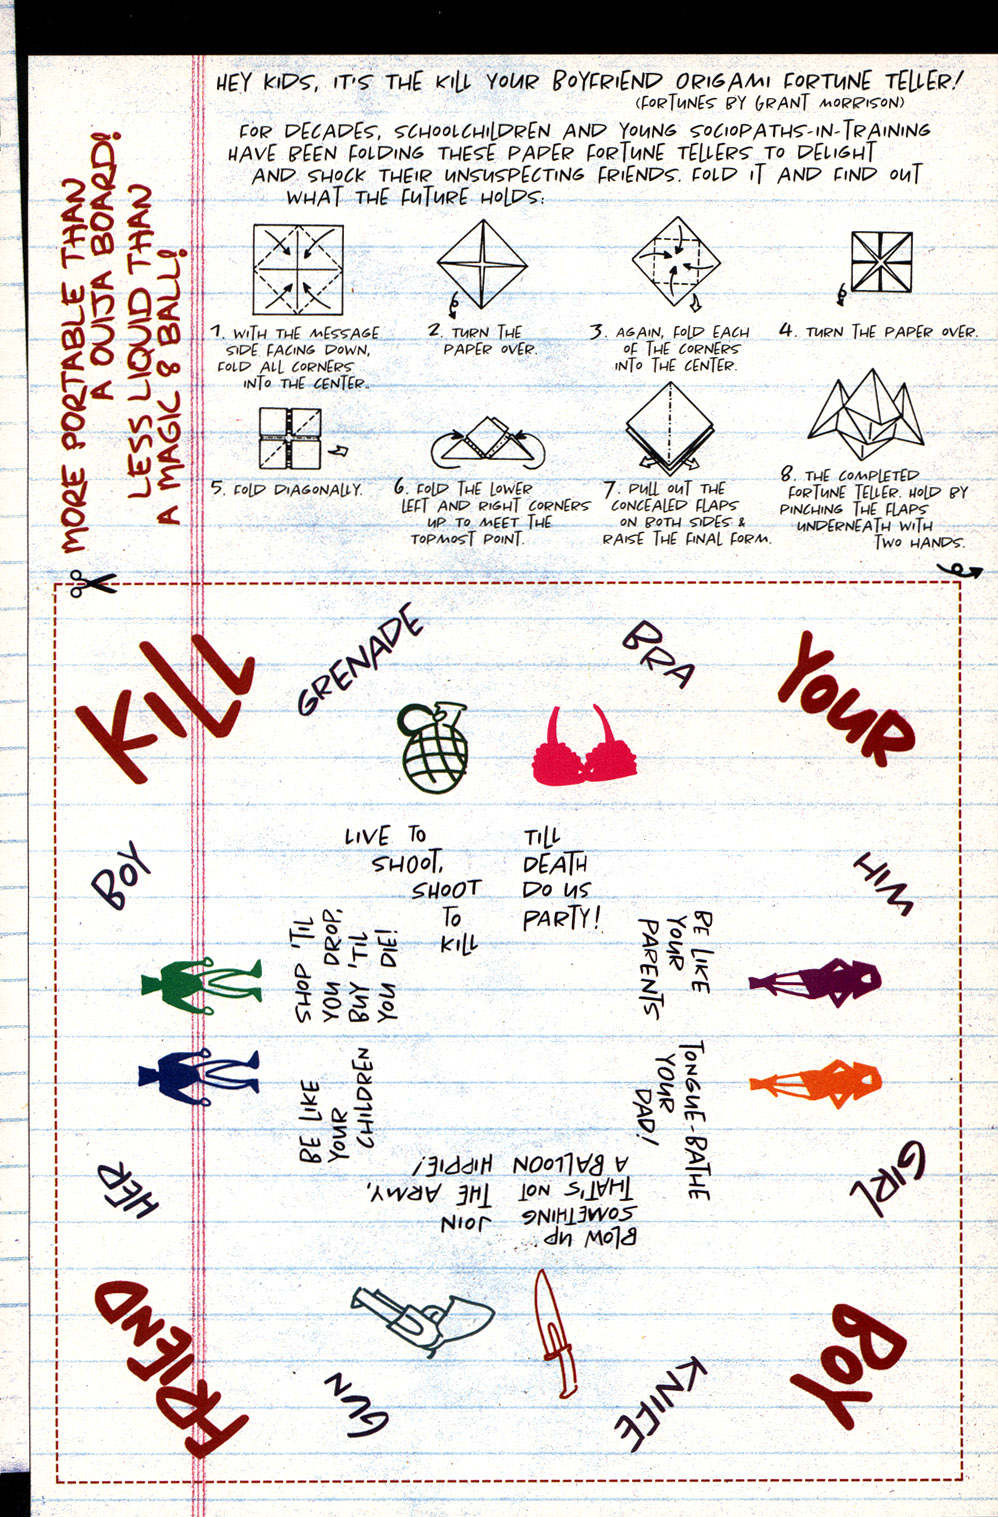 HEY KIDS, IT'S THE KILL YOUR BOYFRIEND ORIGAMI FORTUNE TELLER!
(FORTUNES BY GRANT MORRISON)
FOR DECADES, SCHOOLCHILDREN AND YOUNG SOCIOPATHS-IN-TRAINING
HAVE BEEN FOLDING THESE PAPER FORTUNE TELLERS TO DELIGHT
AND SHOCK THEIR UNSUSPECTING FRIENDS. FOLD IT AND FIND OUT
WHAT THE FUTURE HOLDS:
MORE PORTABLE THAN
A OUIJA BOARD!
LESS LIQUID THAN
A MAGIC 8 BALL!
1. WITH THE MESSAGE
SIDE FACING DOWN,
FOLD ALL CORNERS
INTO THE CENTER.
2. TURN THE
PAPER OVER.
3. AGAIN, FOLD EACH
OF THE CORNERS
INTO THE CENTER.
4. TURN THE PAPER OVER.
5. FOLD DIAGONALLY.
6. FOLD THE LOWER
LEFT AND RIGHT CORNERS
UP TO MEET THE
TOPMOST POINT.
7. PULL OUT THE
CONCEALED FLAPS
ON BOTH SIDES &
RAISE THE FINAL FORM.
8. THE COMPLETED
FORTUNE TELLER. HOLD BY
PINCHING THE FLAPS
UNDERNEATH WITH
TWO HANDS.
KILL
GRENADE
BRA
YOUR
LIVE TO
SHOOT,
SHOOT
TO
KILL
TILL
DEATH
DO US
PARTY!
BOY
HIM
SHOP 'TIL
YOU DROP,
BUY 'TIL
YOU DIE!
BE LIKE
YOUR
PARENTS
BE LIKE
YOUR
CHILDREN
TONGUE-BATHE
YOUR
DAD!
HER
GIRL
JOIN
THE ARMY,
HIPPIE!
BLOW UP
SOMETHING
THAT'S NOT
A BALLOON
FRIEND
GUN
KNIFE
BOY